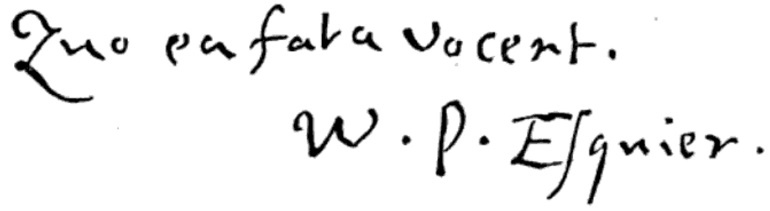 Quo ea fata vocent.
W. P. Esquier.